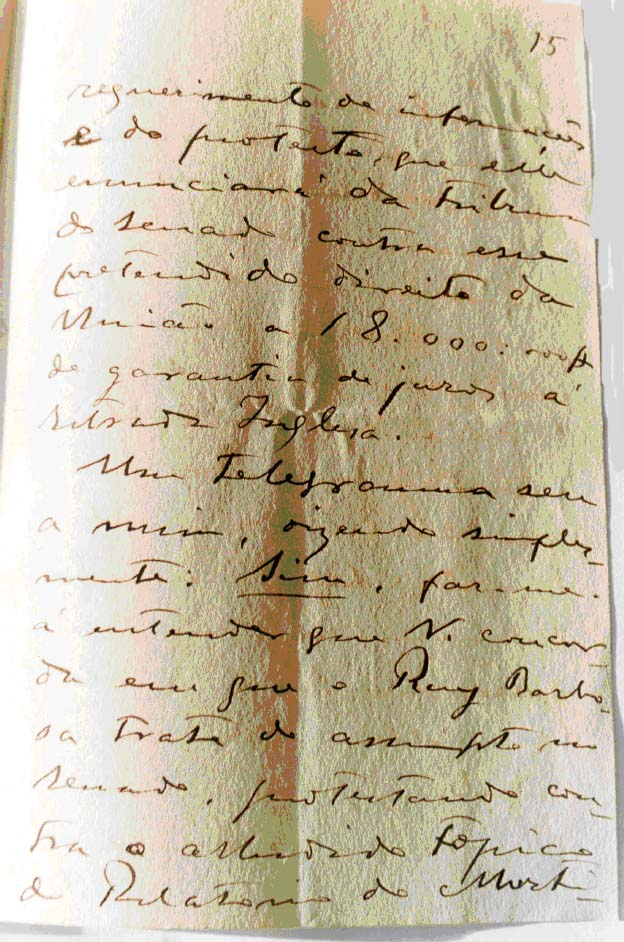 15
requerimento de informações
e do protesto, que elle
enunciará da tribuna
do senado contra esse
pretendido direito da
União a 18.000:000$
de garantia de juros á
Estrada Inglesa.
Um telegramma seu
a mim, dizendo simples-
mente: Sim, far-me-
á entender que V. concor-
da em que o Ruy Barbo-
sa trate do assumpto no
senado, protestando con-
tra o alludido topico
do Relatorio do Morti-